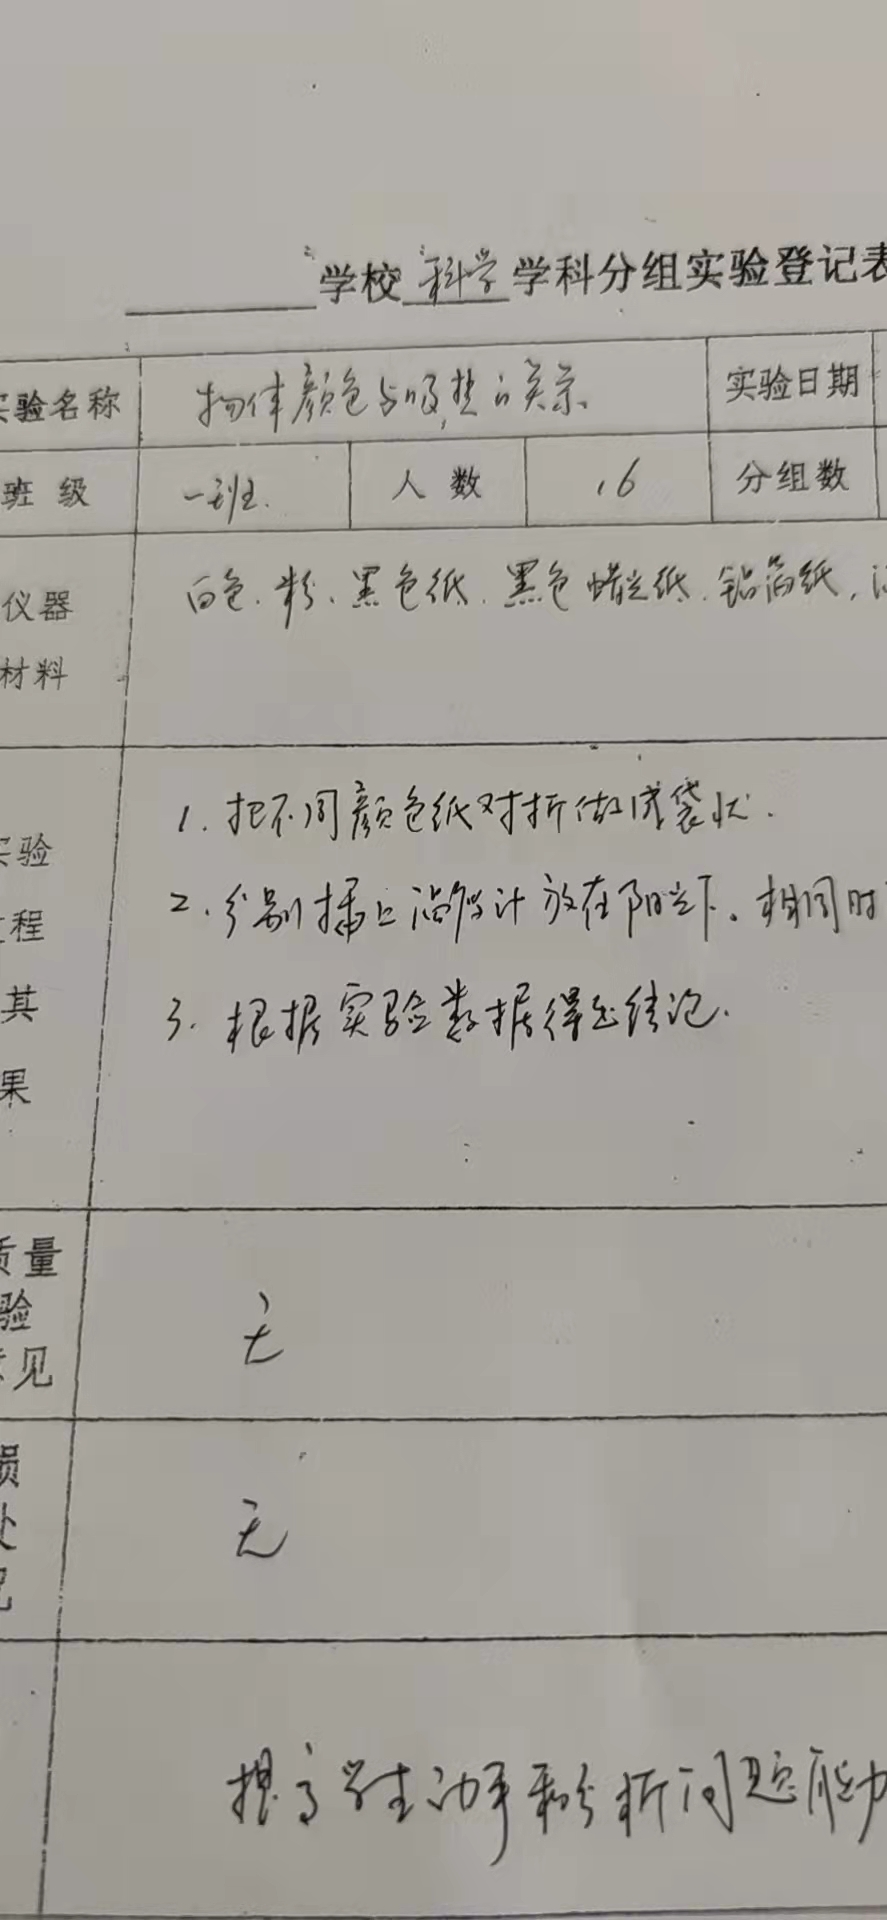 学校 科学 学科分组实验登记表
实验名称 物体颜色与吸热的关系 实验日期
班级 一班. 人数 16 分组数
仪器 白色、粉、黑色纸、黑色蜡光纸、铝箔纸,
材料
实验 1. 把不同颜色纸对折做成袋状.
程 2. 分别插上温度计放在阳光下。相同时
其 3. 根据实验数据得出结论.
果
质量
验 无
意见
损 无
处
况
提高学生动手和分析问题能力